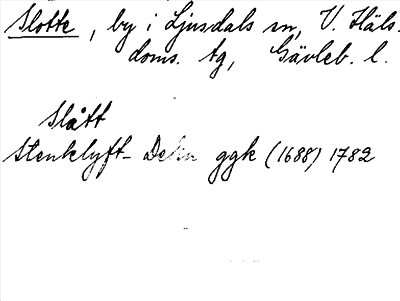 Slotte, by i Ljusdals sn, V. Häls.
doms. tg, Gävleb. l.
Slått
Stenklyft- Delin ggk (1688) 1782